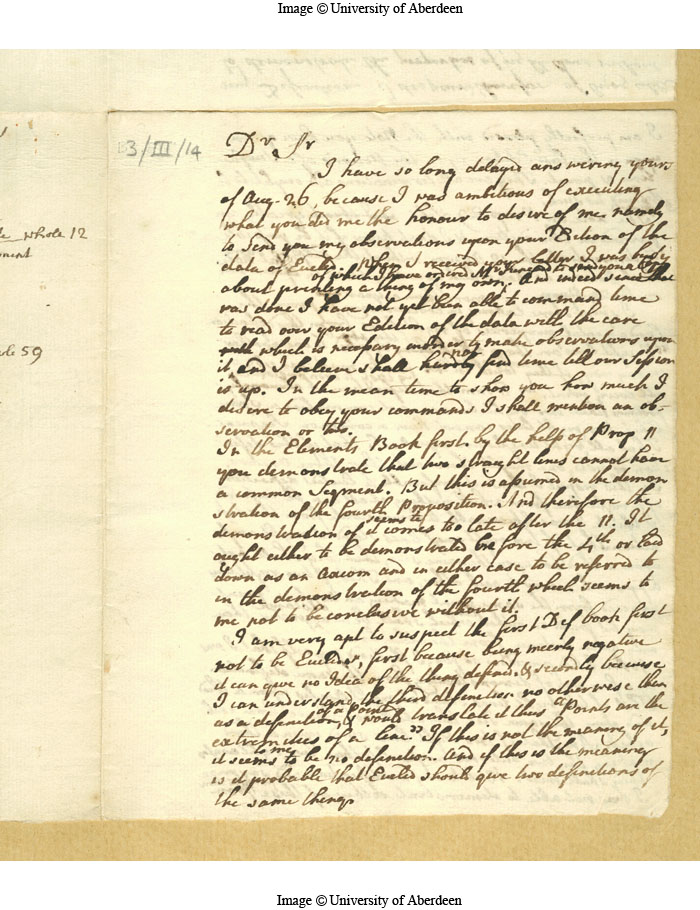 Image © University of Aberdeen
3/III/14
Dr. Sr
I have so long delayed answering yours
of Aug. 26, because I was ambitious of executing
what you did me the honour to desire of me namely
to send you my observations upon your Edition of the
data of Euclid. When I received your letter I was busy
of which I have ordered Mr to send you a Copy
about printing a thing of my own. And indeed since that
was done I have not yet been able to command time
to read over your Edition of the data with the care
which is necessary in order to make observations upon
it, and I believe shall hardly find time till our Session
not
is up. In the mean time to show you how much I
desire to obey your commands I shall mention an ob-
servation or two.
In the Elements Book first. by the help of Prop 11
you demonstrate that two straight lines cannot have
a common Segment. But this is assumed in the demon
stration of the fourth Proposition. And therefore the
seems to
demonstration of it comes too late after the 11. It
ought either to be demonstrated before the 4th or laid
down as an axiom and in either case to be referred to
in the demonstration of the fourth which seems to
me not to be conclusive without it.
I am very apt to suspect the first Def book first
not to be Euclids, first because being meerly negative
it can give no Idea of the thing defind. & secondly because
I can understand the third definition no otherwise than
of a point
as a definition, & would translate it thus "Points are the
extremities of a line." If this is not the meaning of it,
to me
it seems to be no definition. And if this is the meaning
is it probable that Euclid should give two definitions of
the same thing.
whole 12
59
Image © University of Aberdeen